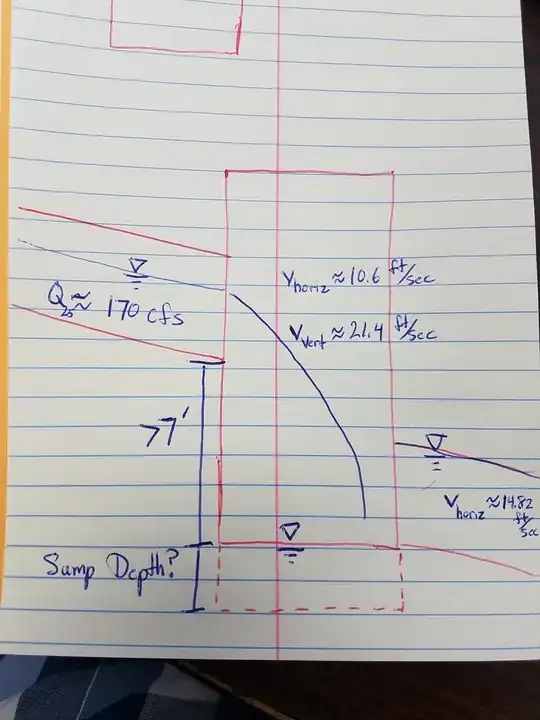 V horiz ≈ 10.6 ft/sec
Q₂₅ ≈ 170 cfs
V vert ≈ 21.4 ft/sec
>7'
V horiz ≈ 14.82 ft/sec
Sump Depth?